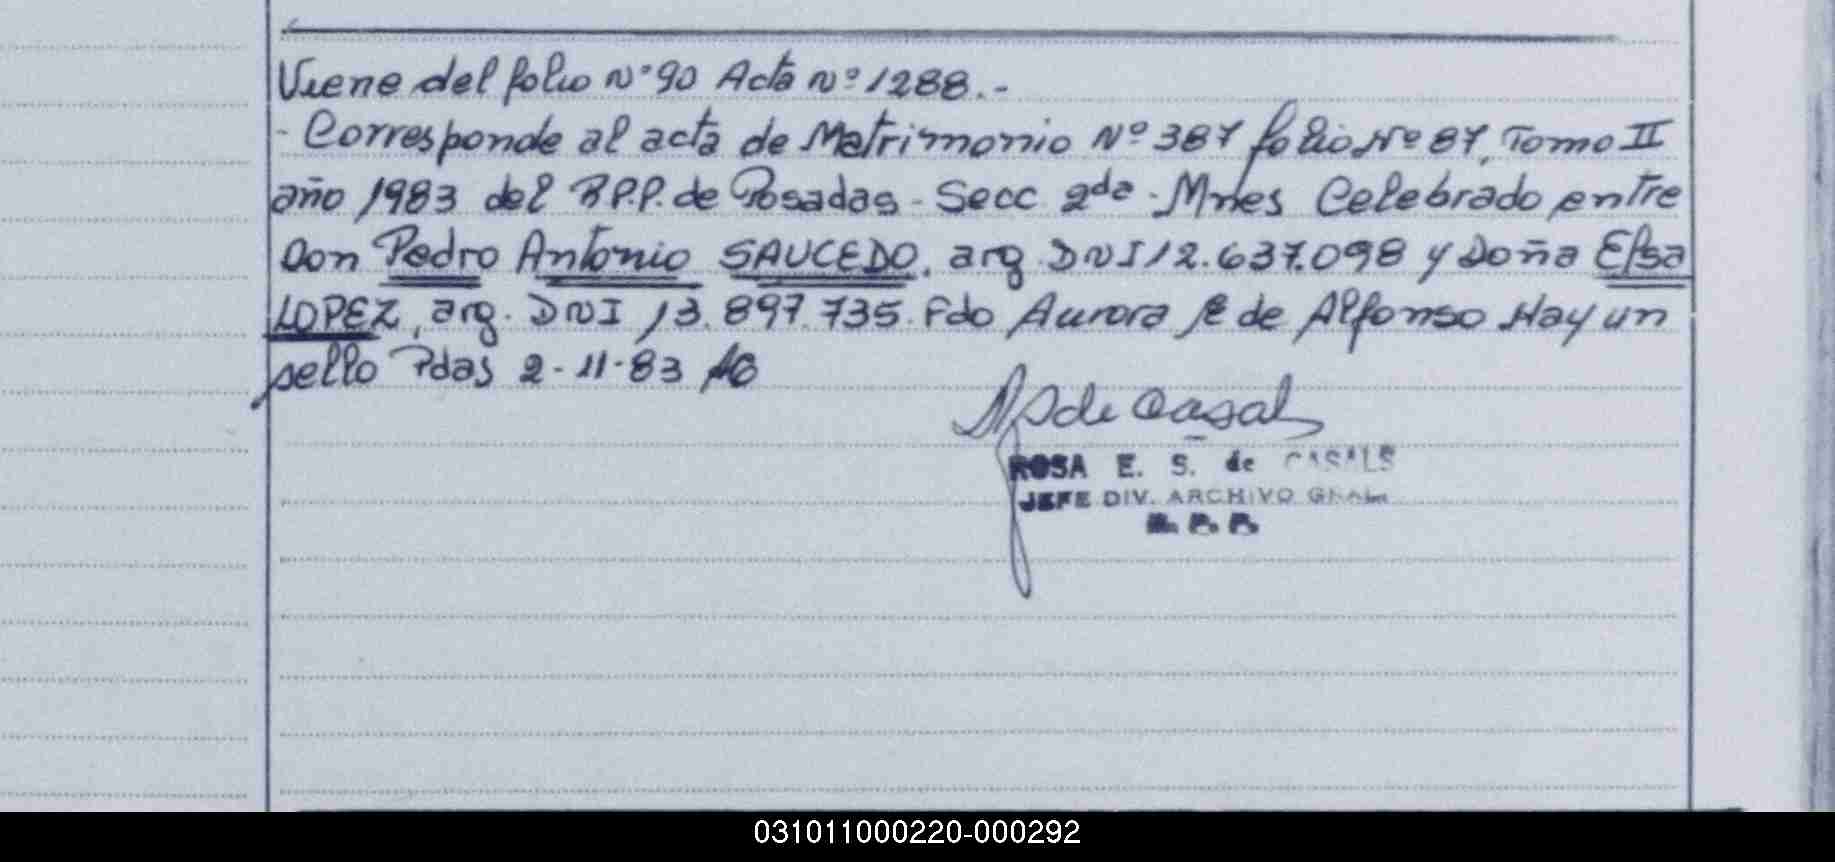 Viene del folio Nº 90 Acta Nº 1288.-
- Corresponde al acta de Matrimonio Nº 387 folio Nº 87, Tomo II
año 1983 del R.P.P. de Posadas - Secc 2da - Mnes Celebrado entre
Don Pedro Antonio SAUCEDO, arg. DNI 12.637.098 y Doña Elsa
LOPEZ, arg. DNI 13.897.735. Fdo Aurora de Alfonso Hay un
sello Pdas 2-11-83
de Casals
ROSA E. S. de CASALS
JEFE DIV. ARCHIVO GRAL.
R. P. P.
031011000220-000292